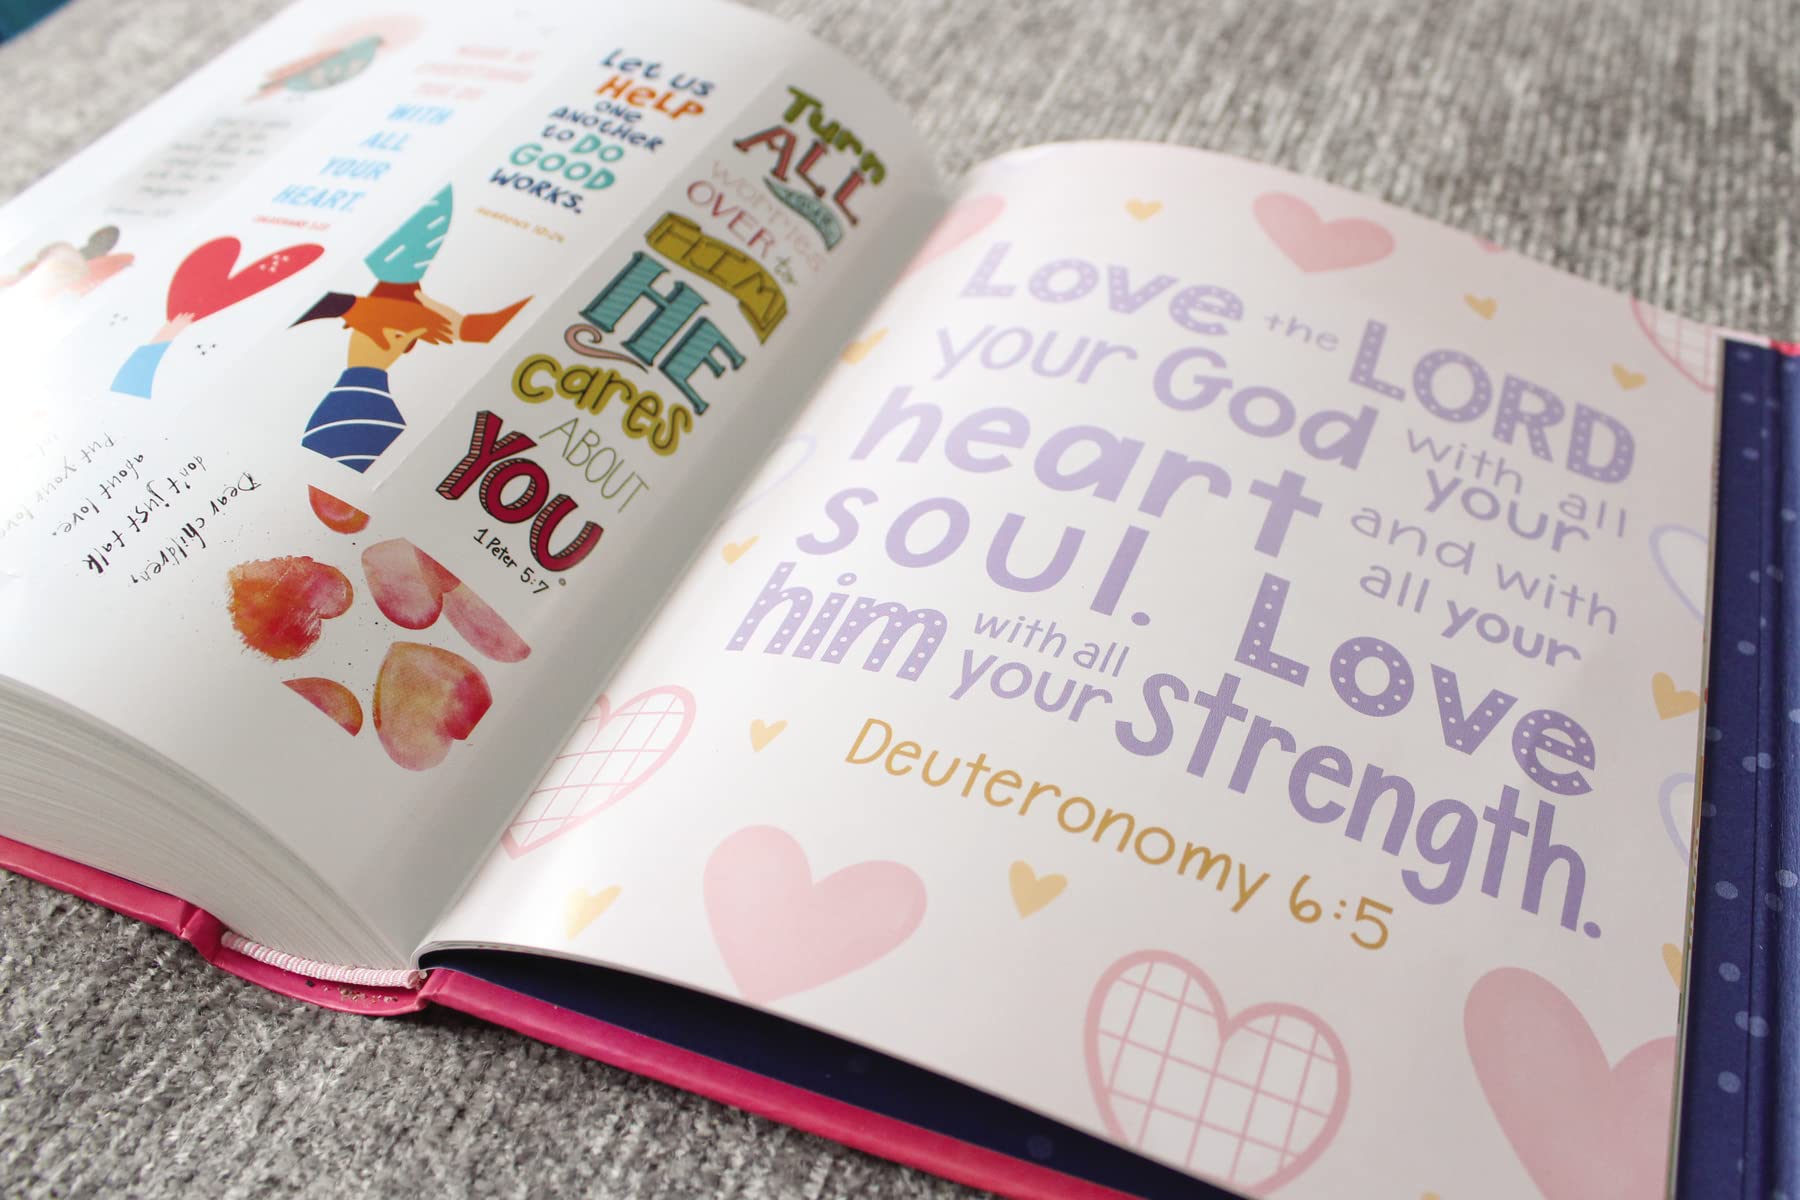 WITH
ALL
YOUR
HEART.
Let us
HeLP
one
another
to DO
GOOD
works.
Hebrews 10:24
Turn
ALL
your
worries
OVER to
HIM
HE
cares
ABOUT
YOU.
1 Peter 5:7
Dear children,
don't just talk
about love.
Put your love
Love the LORD
your God with all your
heart and with all your
soul. Love
him with all your strength.
Deuteronomy 6:5